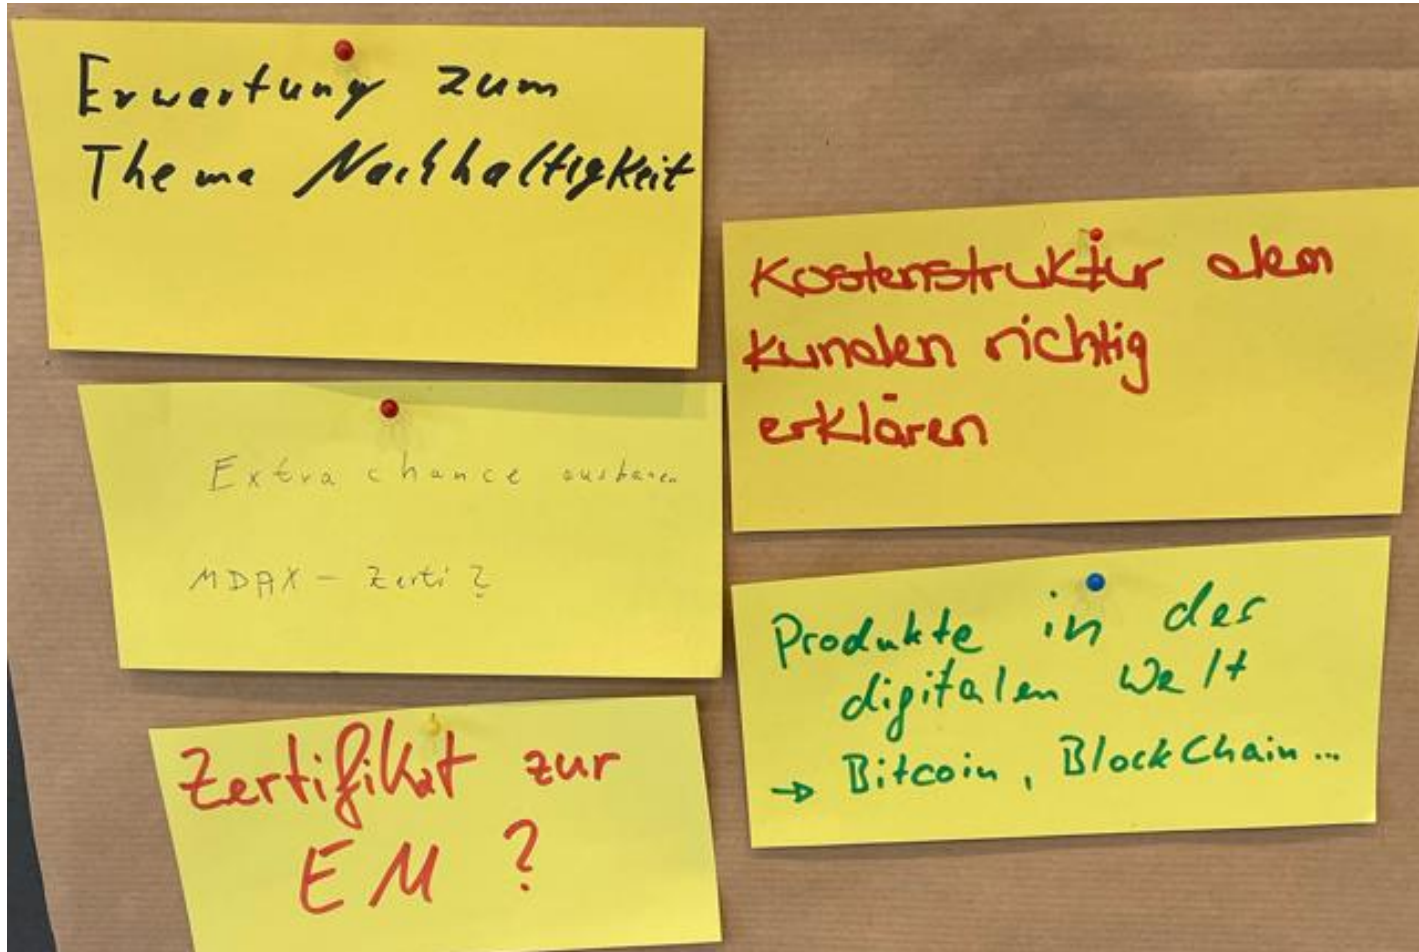 Erwartung zum
Thema Nachhaltigkeit
Extra chance ausbauen
MDAX - Zerti?
Zertifikat zur
EM?
Kostenstruktur dem
Kunden richtig
erklären
Produkte in der
digitalen Welt
→ Bitcoin, BlockChain...